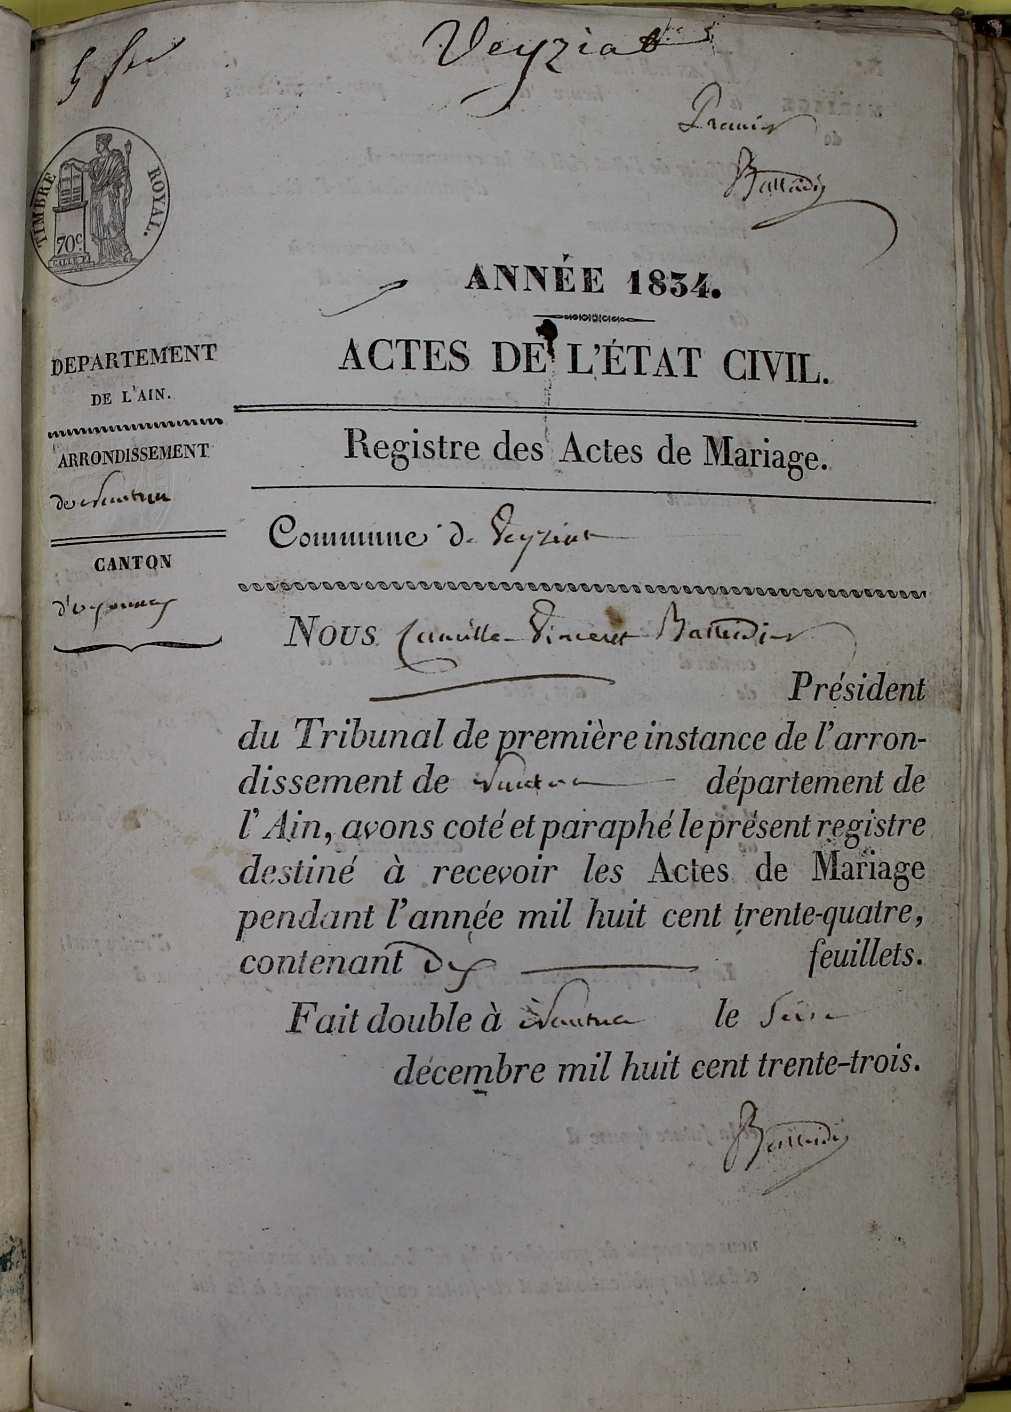 Veyziat
Premier
TIMBRE ROYAL.
70c.
ANNÉE 1834.
ACTES DE L'ÉTAT CIVIL.
DEPARTEMENT
DE L'AIN.
Registre des Actes de Mariage.
ARRONDISSEMENT
de Nantua
Commune de Veyziat
CANTON
d'oyonnax
Nous Camille Vincent
Président
du Tribunal de première instance de l'arron-
dissement de Nantua département de
l'Ain, avons coté et paraphé le présent registre
destiné à recevoir les Actes de Mariage
pendant l'année mil huit cent trente-quatre,
contenant Dix feuillets.
Fait double à Nantua le Seize
décembre mil huit cent trente-trois.